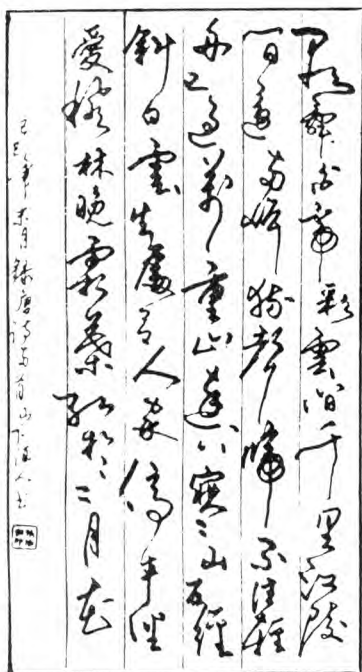 朝辭白帝彩雲間千里江陵
一日還兩岸猿聲啼不住輕
舟已過萬重山遠上寒山石經
斜白雲生處有人家停車坐
愛楓林晚霜葉紅於二月花
己巳年末月錄唐詩兩首山人書